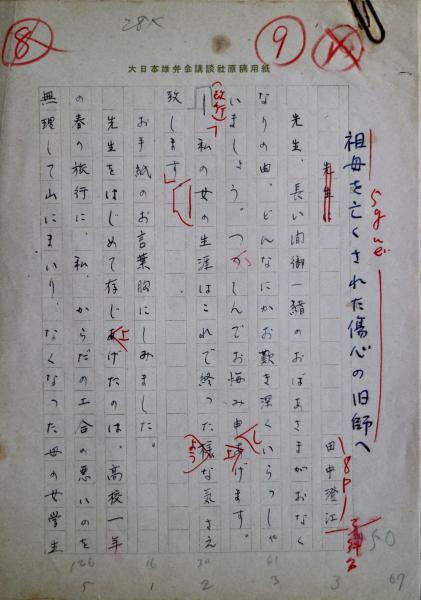 28×
⑧
⑨
大日本雄弁会講談社原稿用紙
祖母を亡くされた傷心の旧師へ
田中澄江
先生に
先生、長い間御一緒のおばあさまがおなく
なりの由、どんなにかお歎き深くいらっしゃ
いましょう。つゝしんでお悔み申あげます。
「私の女の生涯はこれで終った様な気さえ
致します」
お手紙のお言葉胸にしみました。
先生をはじめて存じあげたのは、高校一年
の春の旅行に、私、からだの工合の悪いのを
無理して山にまいり、なくなった母の女学生
(改行)
し
上
よう
上
8P
50
67
3
61
3
30
2
31
1
16
1
126
5